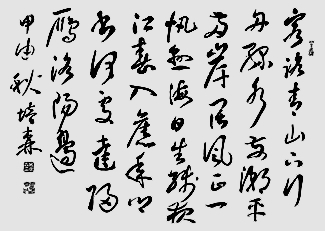 客路青山下行
舟綠水前潮平
兩岸闊風正一
帆懸海日生殘夜
江春入舊年鄉
書何處達歸
雁洛陽邊
甲申秋培森